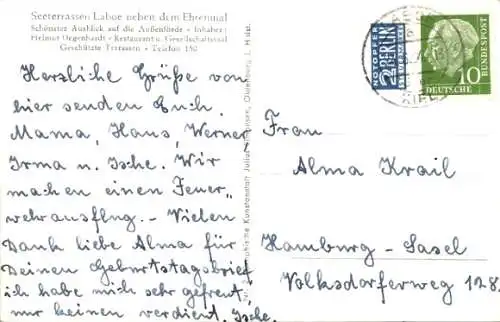 Seeterrassen Laboe neben dem Ehrenmal
Schönster Ausblick auf die Außenförde - Inhaber:
Helmut Degenhardt - Restaurant u. Gesellschaftssaal
Geschützte Terrassen - Telefon 150
Herzliche Grüße von
hier senden Euch
Mama, Hans, Werner
Irma u. Ische. Wir
machen einen Feuer„
wehrausflug. - Vielen
Dank liebe Alma für
Deinen Geburtstagsbrief
ich habe mich sehr gefreut,
nur keinen verdient. Ische.
Kunstanstalt Julius Simonsen, Oldenburg i. Holst.
NOTOPFER
2 BERLIN
STEUERMARKE
DEUTSCHE BUNDESPOST
10
KIEL
Frau
Alma Krail
Hamburg - Sasel
Volksdorferweg 128